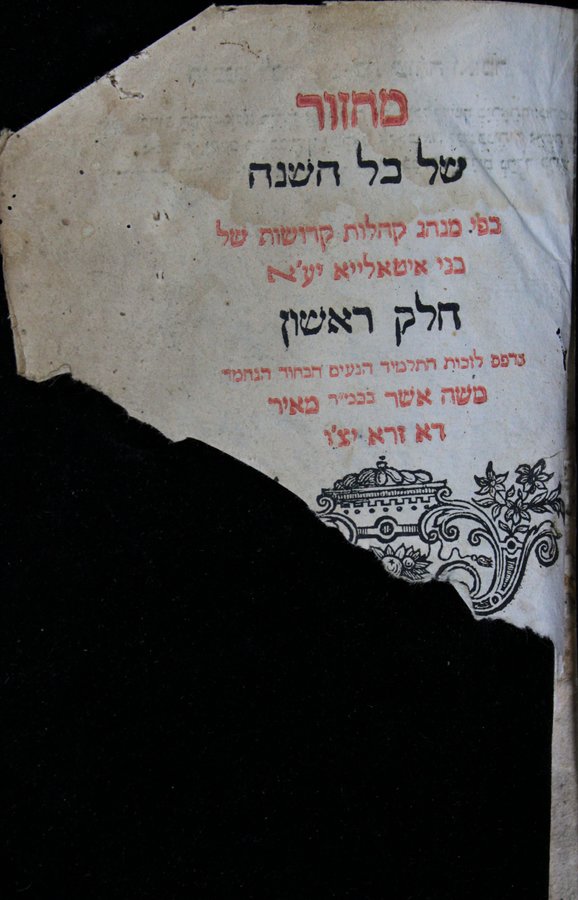 מחזור
של כל השנה
כפי מנהג קהלות קדושות של
בני איטאלייא יע״א
חלק ראשון
נדפס לזכות התלמיד הנעים הבחור הנחמד
משה אשר בכמ״ר מאיר
דא זרא יצ״ו